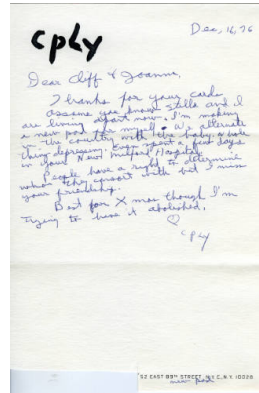 cply
Dec, 16, 76
Dear Cliff & Joanne,
Thanks for your card.
assume you know Stella and I
are living apart now. I'm making
a new pad for myself. We alternate
in the country with the baby. a whole
thing depressing. Even spent a few days
in your New Milford Hospital.
People have a right to determine
whom they consort with but I miss
your friendship.
Best for X mas though I'm
trying to have it abolished.
cply
52 EAST 89TH STREET, N.Y.C., N.Y. 10028
new pad